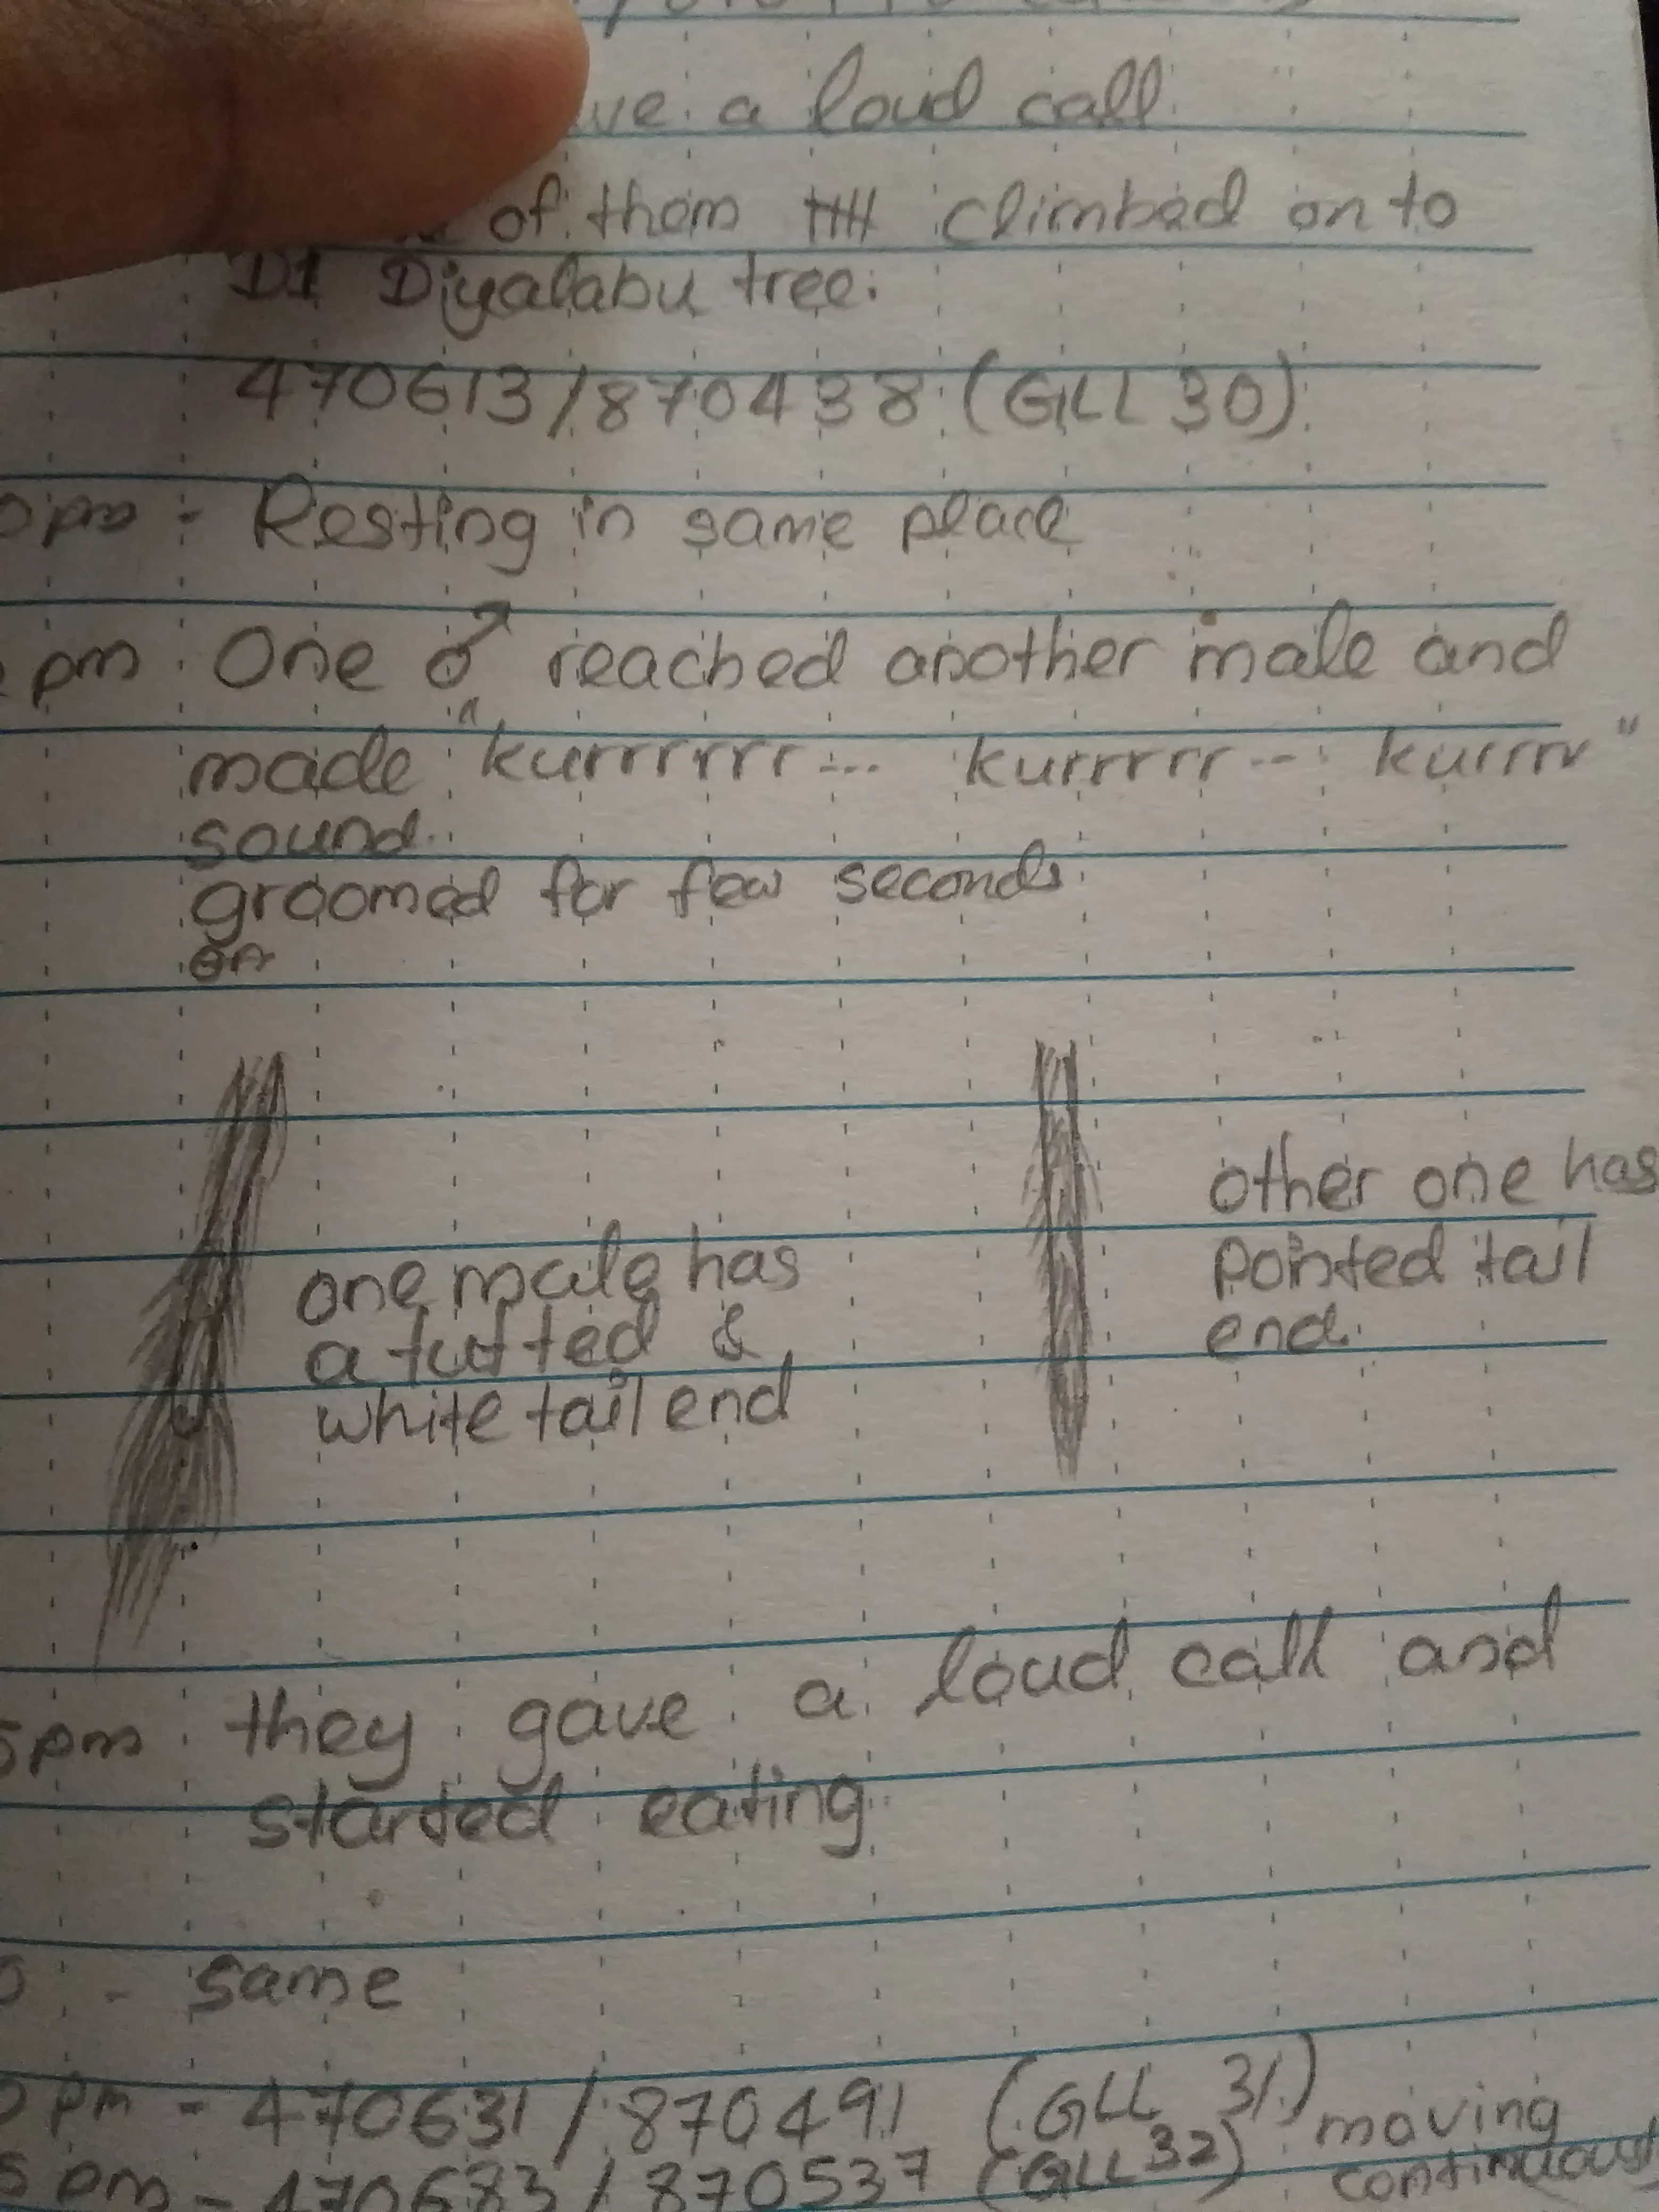 a loud call
of them climbed on to
D1 Diyalabu tree.
470613/870438 (GLL 30)
pm : Resting in same place
pm : One ♂ reached another male and
made "kurrrrrrr... kurrrrrr... kurrrr"
sound.
groomed for few seconds
one male has
a tufted &
white tail end
other one has
pointed tail
end.
5pm : they gave a loud call and
started eating
- same
pm - 470631/870491 (GLL 31) moving
5 pm - 470683/870537 (GLL 32) continuously